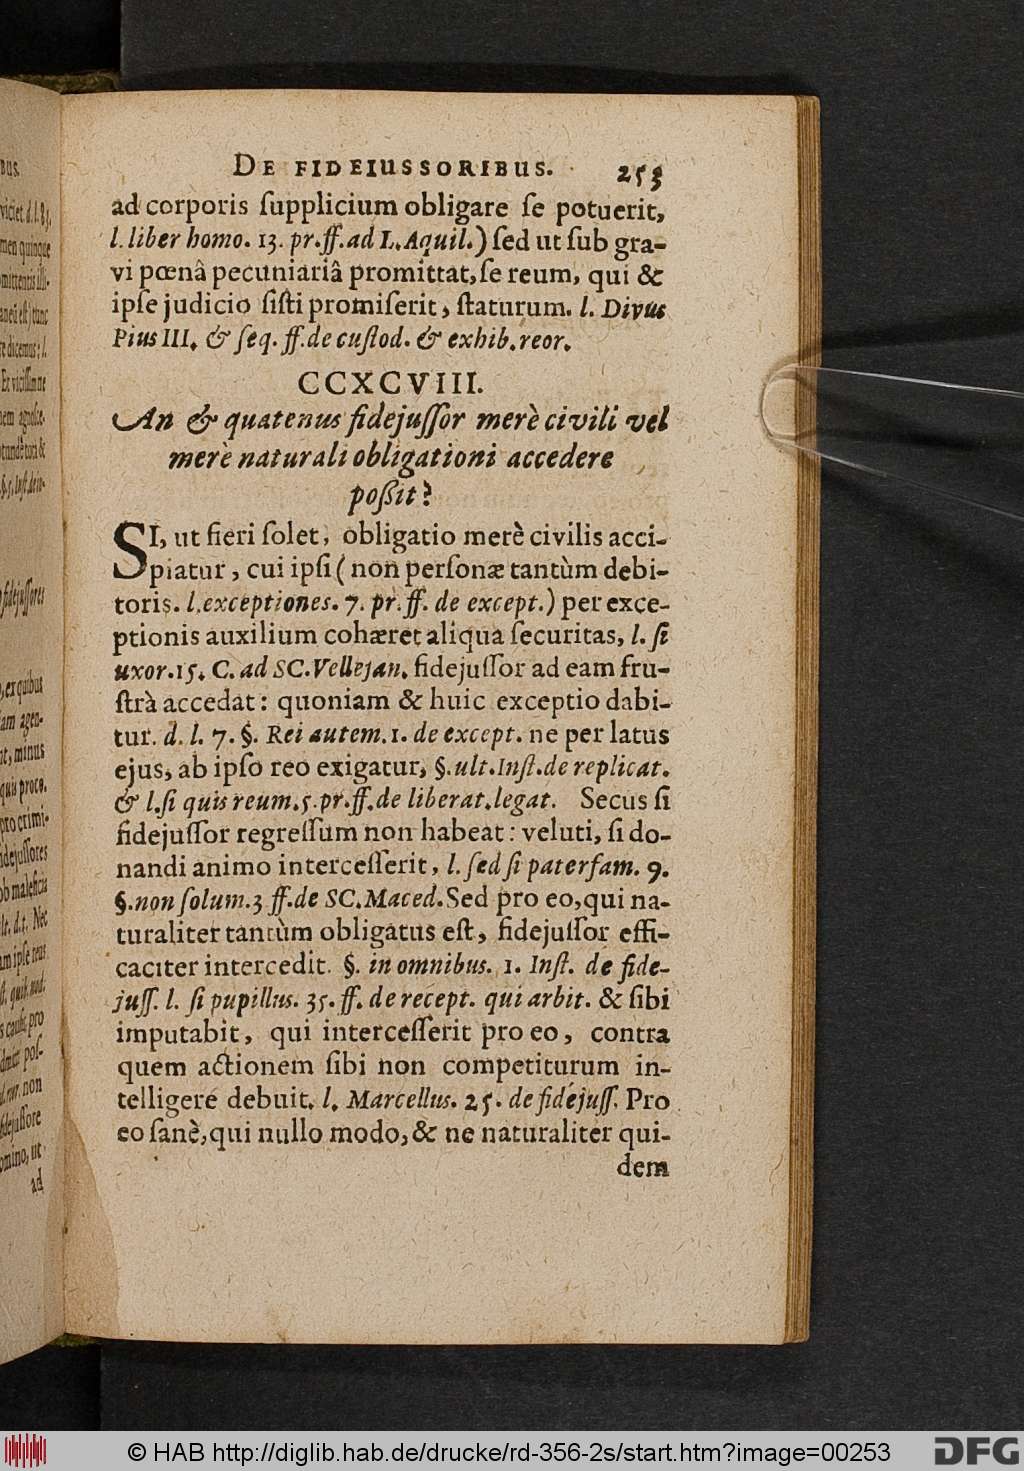 DE FIDEIUSSORIBUS. 253
ad corporis ſupplicium obligare ſe potuerit,
l. liber homo. 13. pr. ff. ad L. Aquil.) ſed ut ſub gra-
vi pœnâ pecuniariâ promittat, ſe reum, qui &
ipſe judicio ſiſti promiſerit, ſtaturum. l. Divus
Pius III. & ſeq. ff. de cuſtod. & exhib. reor.
CCXCVIII.
An & quatenus fidejuſſor merè civili vel
merè naturali obligationi accedere
poßit?
SI, ut fieri ſolet, obligatio merè civilis acci-
piatur, cui ipſi (non perſonæ tantùm debi-
toris. l. exceptiones. 7. pr. ff. de except.) per exce-
ptionis auxilium cohæret aliqua ſecuritas, l. ſi
uxor. 15. C. ad SC. Vellejan. fidejuſſor ad eam fru-
ſtrà accedat: quoniam & huic exceptio dabi-
tur. d. l. 7. §. Rei autem. 1. de except. ne per latus
ejus, ab ipſo reo exigatur, §. ult. Inſt. de replicat.
& l. ſi quis reum. 5. pr. ff. de liberat. legat. Secus ſi
fidejuſſor regreſſum non habeat: veluti, ſi do-
nandi animo interceſſerit, l. ſed ſi paterfam. 9.
§. non ſolum. 3 ff. de SC. Maced. Sed pro eo, qui na-
turaliter tantùm obligatus eſt, fidejuſſor effi-
caciter intercedit. §. in omnibus. 1. Inſt. de fide-
juſſ. l. ſi pupillus. 35. ff. de recept. qui arbit. & ſibi
imputabit, qui interceſſerit pro eo, contra
quem actionem ſibi non competiturum in-
telligere debuit. l. Marcellus. 25. de fidejuſſ. Pro
eo ſanè, qui nullo modo, & ne naturaliter qui-
dem
© HAB http://diglib.hab.de/drucke/rd-356-2s/start.htm?image=00253
DFG